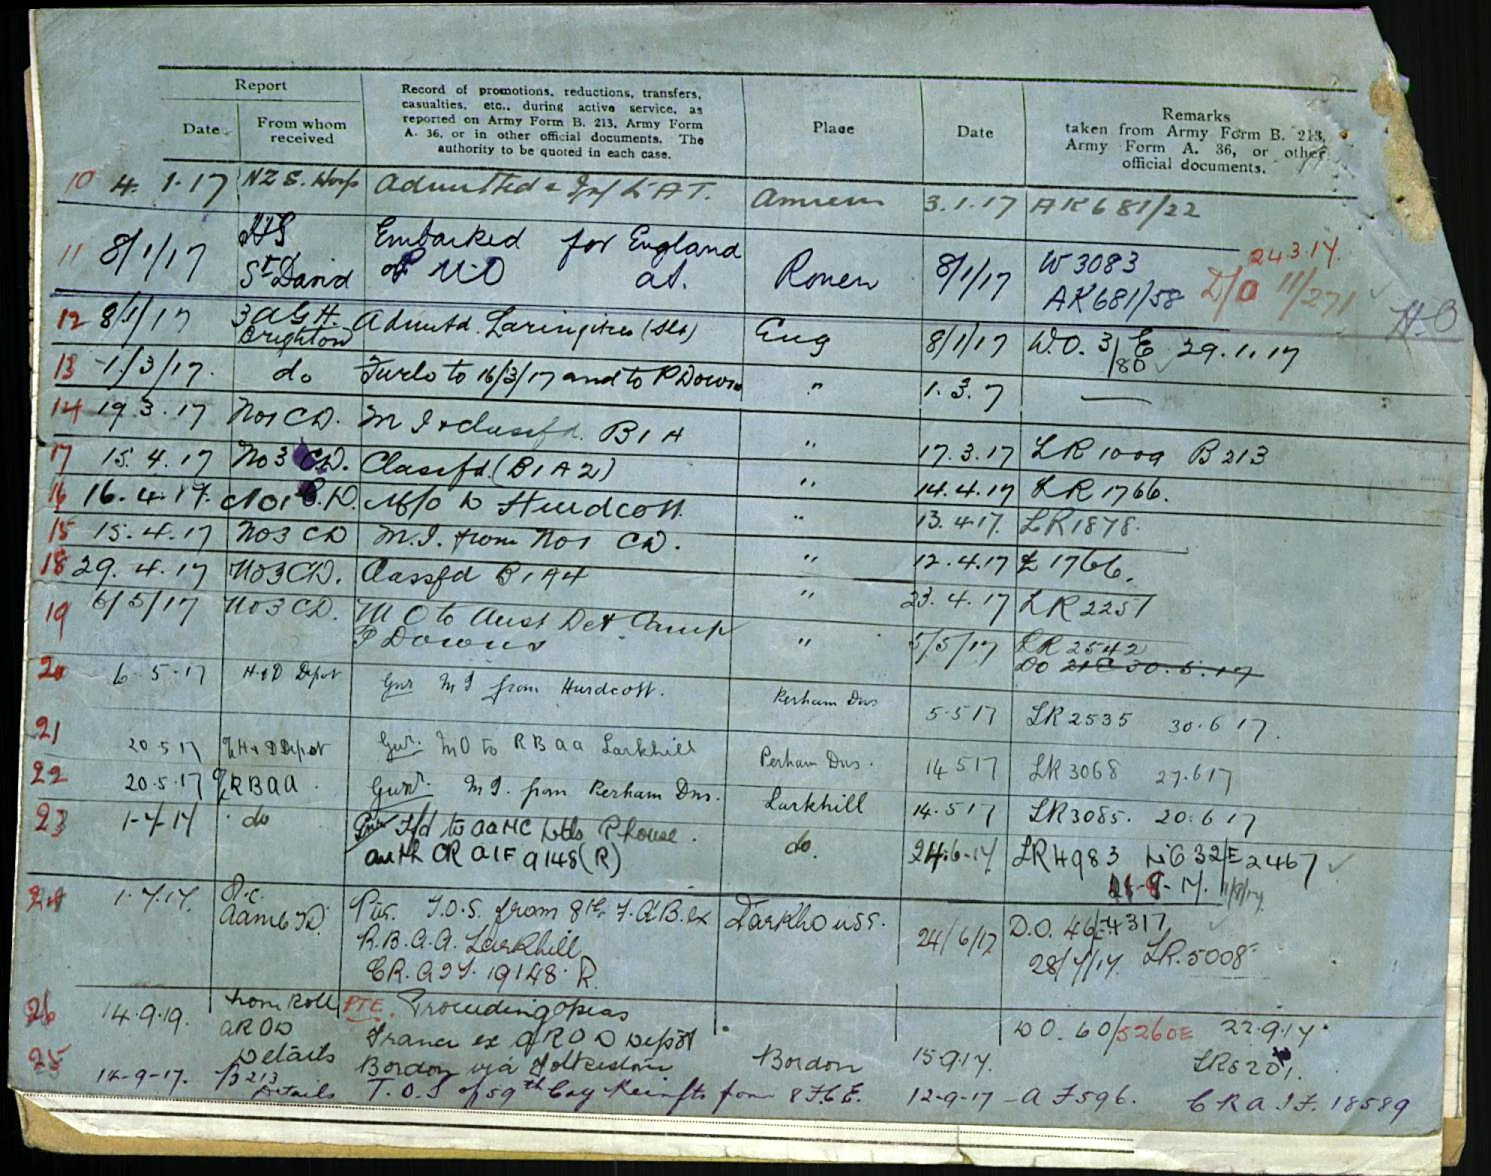 Report
Date
From whom
received
Record of promotions, reductions, transfers,
casualties, etc., during active service, as
reported on Army Form B. 213, Army Form
A. 36, or in other official documents. The
authority to be quoted in each case.
Place
Date
Remarks
taken from Army Form B. 213,
Army Form A. 36, or other
official documents.
10 4. 1.17 NZ S. Hosp Admitted 3.1.17 AK681/22
24.3.17.
11 8/1/17 HS Embarked for England 8/1/17 W3083
St David at. Rouen AK681/58 D/O 11/271
H.O
12 8/1/17 3 AGH. Eng 8/1/17 W.O. 3/E 29.1.17
Brighton 80
13 1/3/17. do Furlo to 16/3/17 and to P Downs " 1.3.7
14 19.3.17 No1 CD. M I & Classfd. B1A " 17.3.17 LR 1009 B213
17 15.4.17 No3 CD. Classfd (B1A2) " 14.4.17 LR 1766.
16 16.4.17. No1 C.D. M/o to Hurdcott " 13.4.17. LR1878.
15 15.4.17 No3 CD M.I. from No1 CD. " 12.4.17 1766.
18 29.4.17 No3CD. Classfd B1A4 " 23.4.17 LR2257
19 6/5/17 No3 CD. M O to Aust Det Camp " 5/5/17 LR 2542
P Downs DO 30.5.17
20 6.5.17 H&D Depot M I from Hurdcott. Perham Dns 5.5.17 LR2535 30.6.17.
21 20.5.17 H & D Depot Gnr. MO to RBAA Larkhill Perham Dns. 14.5.17 LR3068 27.6.17
22 20.5.17 RBAA. Gnr. M I. from Perham Dns. Larkhill 14.5.17 LR3085. 20.6.17
23 1.7.17 do Gnr T/d to AAMC P.house. do. 24.6.17 LR4983 632/E 2467
auth CR AIF 9148(R)
24 1.7.17. O.C. Pte. T.O.S. from 8th F.A.B. ex Parkhouse. 24/6/17 D.O. 46/E4317
AAMC TD. R.B.A.A. Larkhill 28/7/17. LR.5008
CR.AIF. 19148. R.
26 14.9.19. from Roll PTE. Proceeding Oseas DO. 60/5260E 22.9.17.
AROD France ex AROD Depot
25 Details Bordon via Folkestone Bordon 15.9.17.
14-9-17. B213 T.O.S of 59th Coy Reinfts from 8 F.C.E. 12-9-17 AF596. CRAIF. 18589
Details